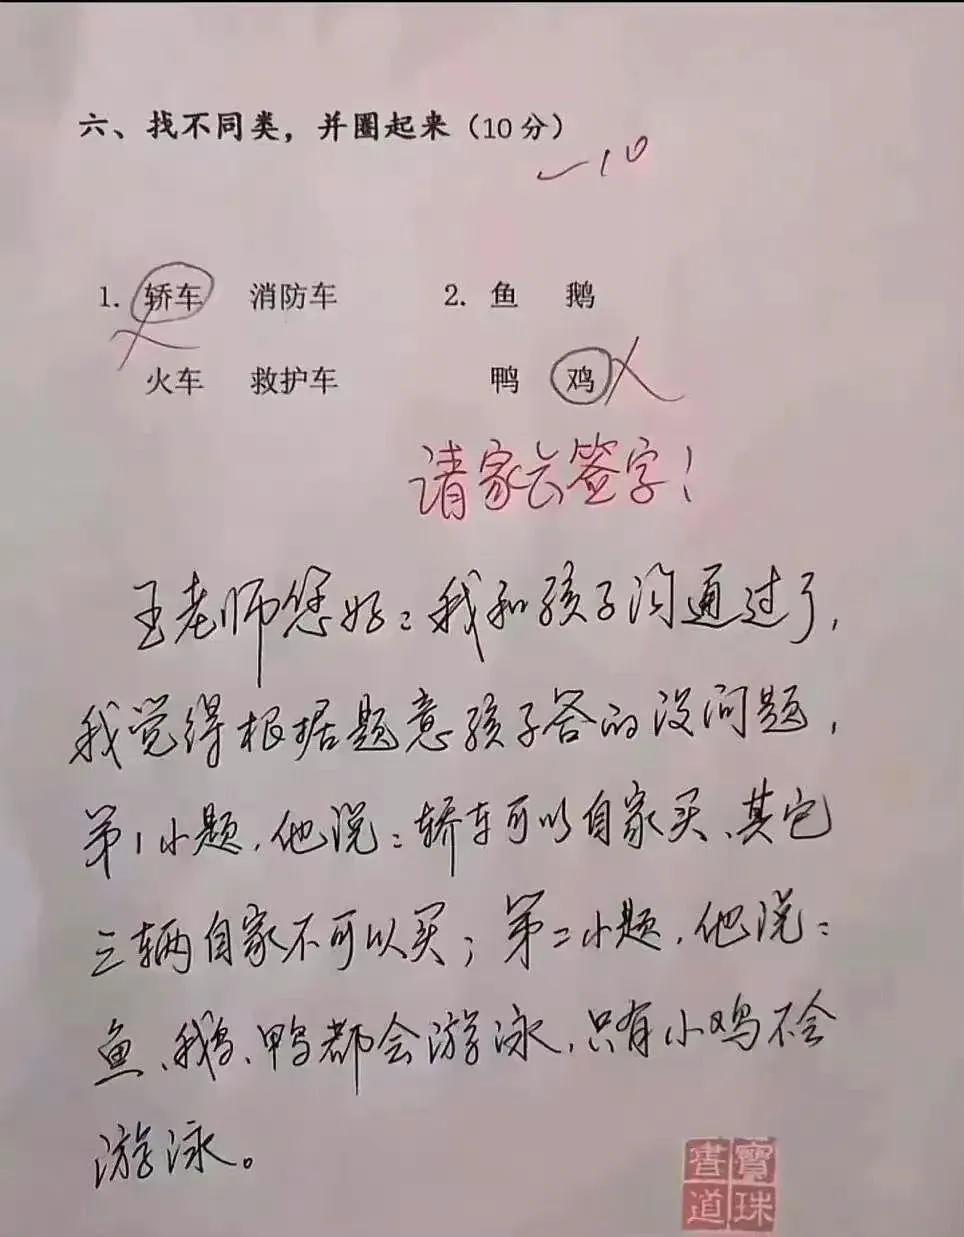 六、找不同类，并圈起来（10分）
-10
1. 轿车 消防车 2. 鱼 鹅
火车 救护车 鸭 鸡
请家长签字！
王老师您好：我和孩子沟通过了，
我觉得根据题意孩子答的没问题，
第1小题，他说：轿车可以自家买、其它
三辆自家不可以买；第二小题，他说：
鱼、鹅、鸭都会游泳，只有小鸡不会
游泳。
書寶
道珠